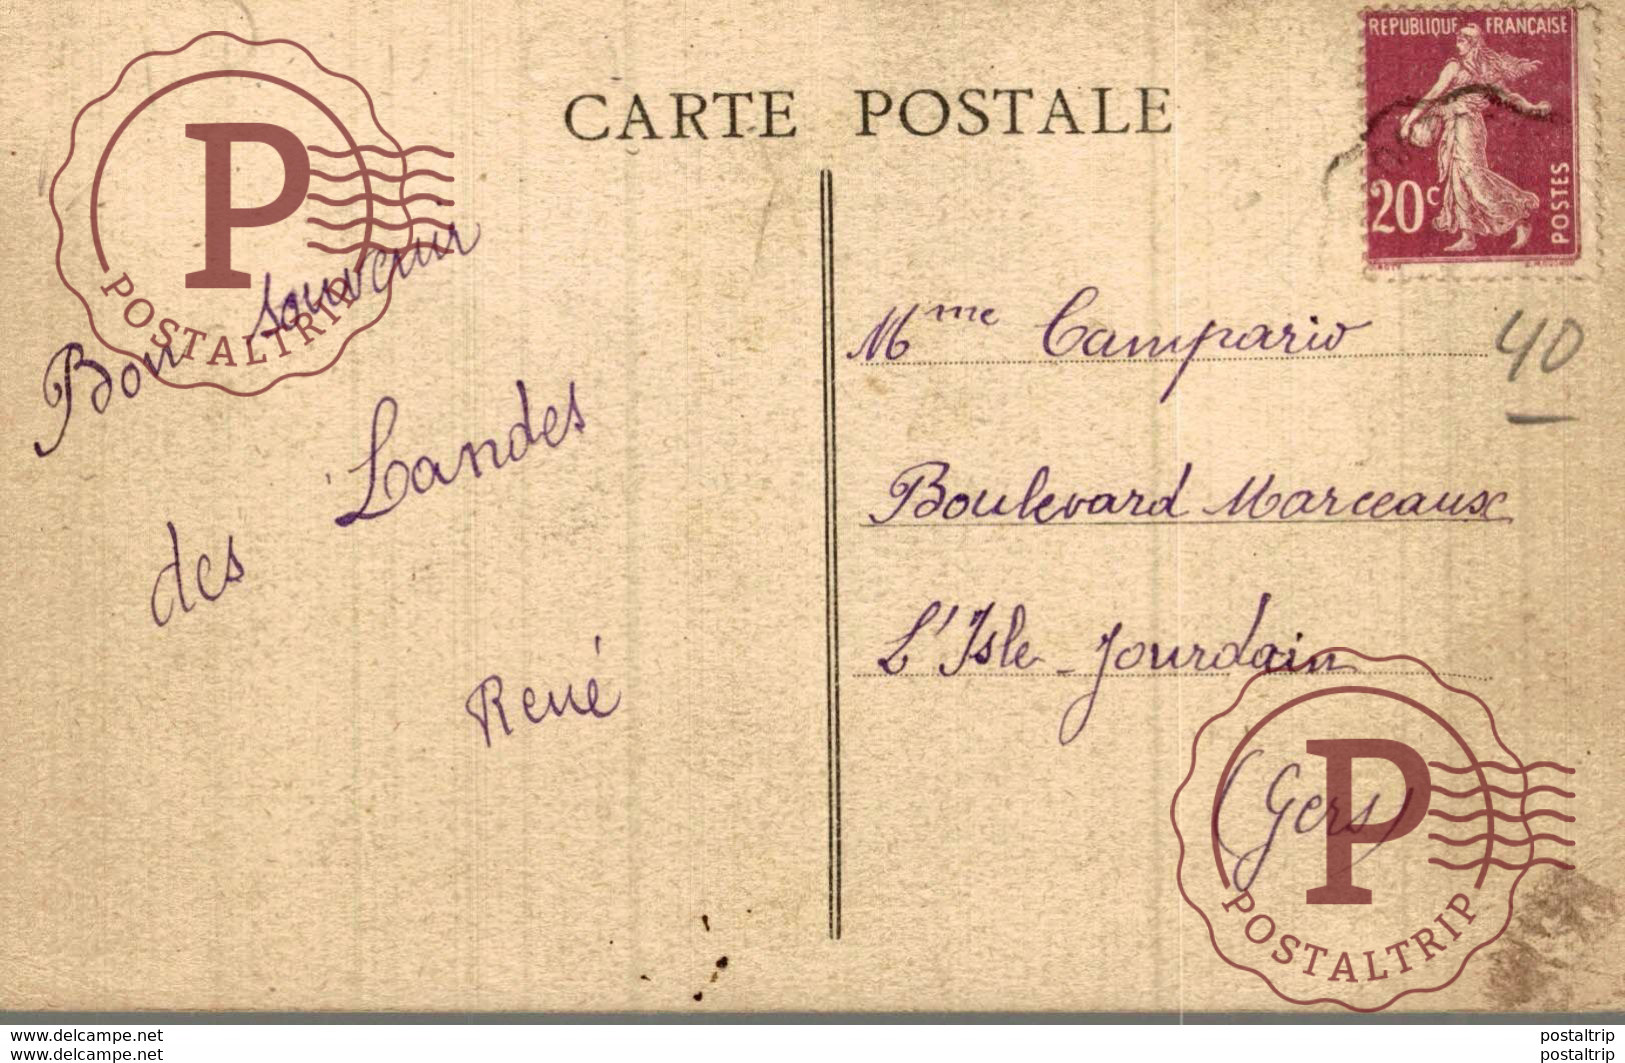 CARTE POSTALE
REPUBLIQUE FRANÇAISE
20c
POSTES
Bon souvenir
des Landes
René
Mme Campario
40
Boulevard Marceaux
L'Isle-Jourdain
(Gers)
P
POSTALTRIP
P
POSTALTRIP
www.delcampe.net
postaltrip
www.delcampe.net
postaltrip